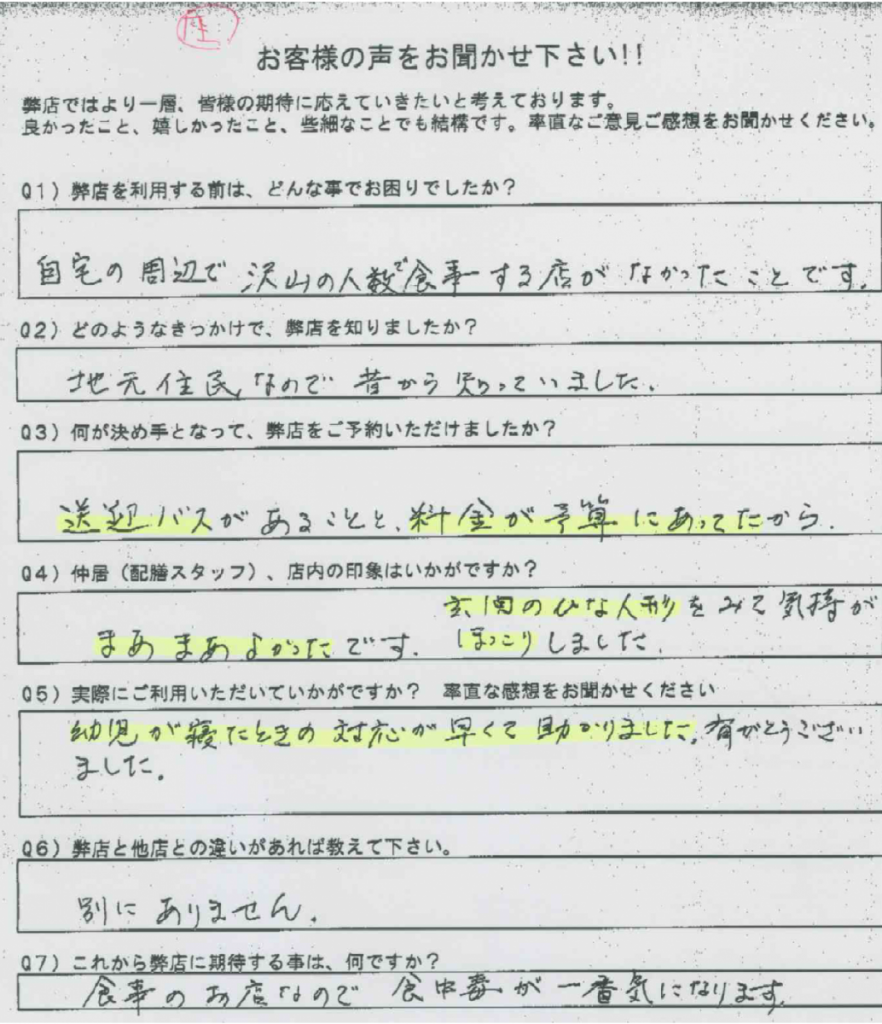 お客様の声をお聞かせ下さい!!
弊店ではより一層、皆様の期待に応えていきたいと考えております。
良かったこと、嬉しかったこと、些細なことでも結構です。率直なご意見ご感想をお聞かせください。
Q1）弊店を利用する前は、どんな事でお困りでしたか？
自宅の周辺で沢山の人数で食事する店がなかったことです。
Q2）どのようなきっかけで、弊店を知りましたか？
地元住民なので昔から知っていました。
Q3）何が決め手となって、弊店をご予約いただけましたか？
送迎バスがあることと、料金が予算にあってたから。
Q4）仲居（配膳スタッフ）、店内の印象はいかがですか？
まあまあよかったです。
玄関のひな人形をみて気持が
ほっこりしました。
Q5）実際にご利用いただいていかがですか？　率直な感想をお聞かせください
幼児が寝たときの対応が早くて助かりました。有がとうござい
ました。
Q6）弊店と他店との違いがあれば教えて下さい。
別にありません。
Q7）これから弊店に期待する事は、何ですか？
食事のお店なので食中毒が一番気になります。